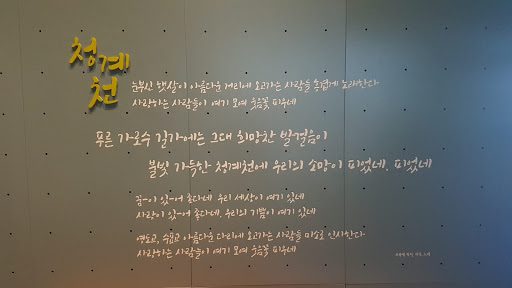 청계
천
눈부신 햇살이 아름다운 거리에 오고가는 사람들 흥겹게 노래한다
사랑하는 사람들이 여기 모여 웃음꽃 피우네
푸른 가로수 길가에는 그대 희망찬 발걸음이
불빛 가득한 청계천에 우리의 소망이 피었네, 피었네
꿈이 있어 좋다네 우리 세상이 여기 있네
사랑이 있어 좋다네, 우리의 기쁨이 여기 있네
영도교, 수표교 아름다운 다리에 오고가는 사람들 미소로 인사한다
사랑하는 사람들이 여기 모여 웃음꽃 피우네